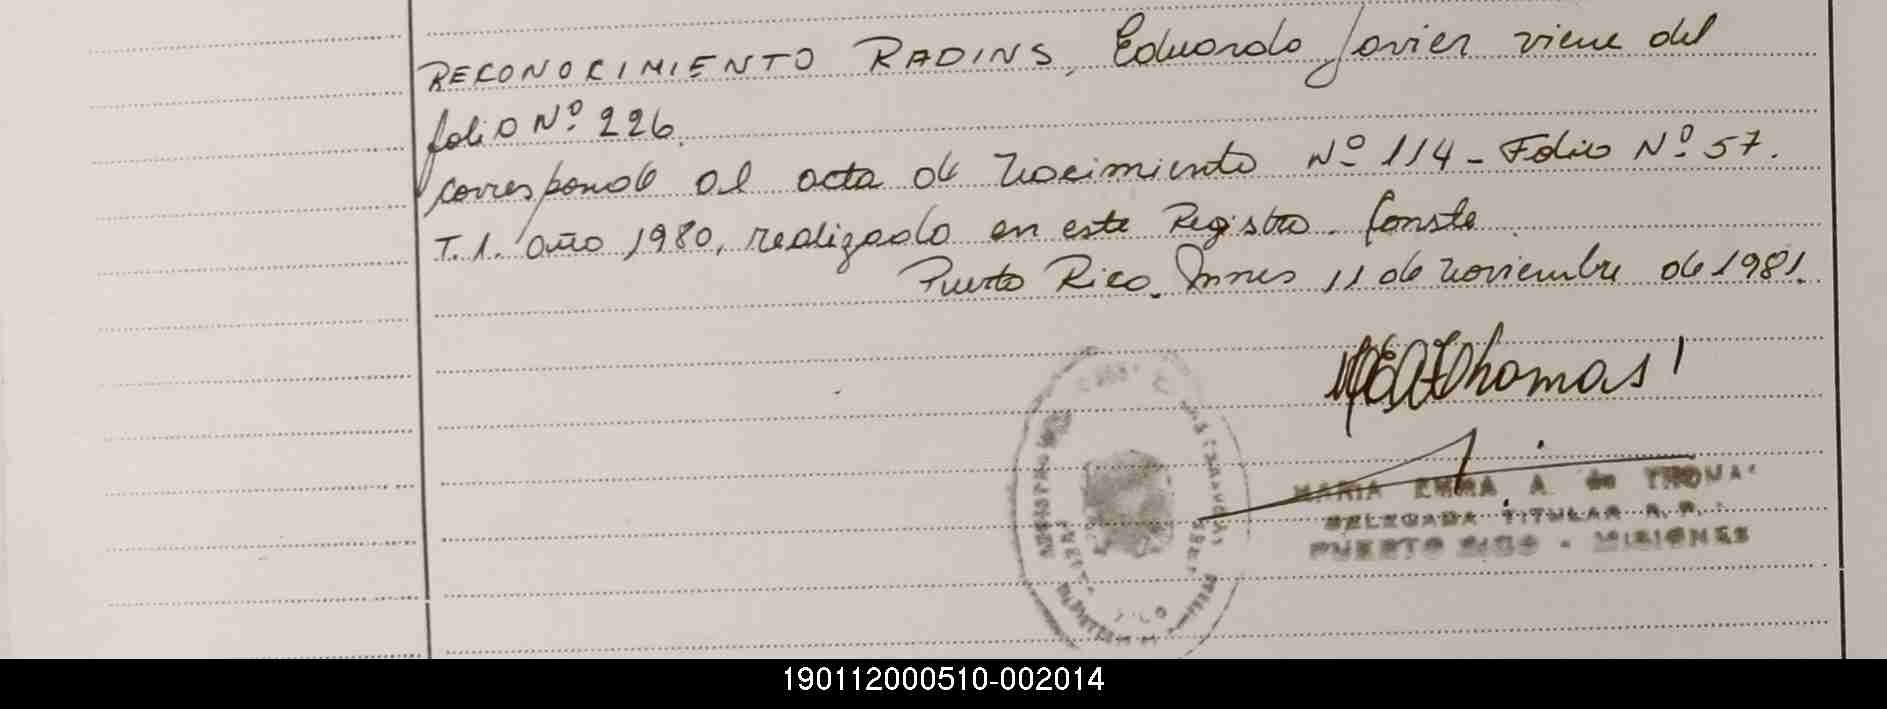 RECONOCIMIENTO RADINS, Eduardo Javier viene del
folio Nº 226.
Corresponde al acta de Nacimiento Nº 114 - Folio Nº 57.
T. 1. año 1980, realizado en este Registro. Conste.
Puerto Rico, Mnes 11 de noviembre de 1981.
Thomas
MARIA EMMA A. de THOMAS
DELEGADA TITULAR R. P.
PUERTO RICO - MISIONES
190112000510-002014